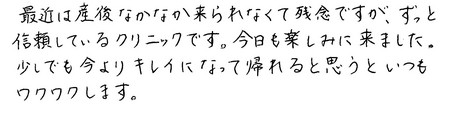 最近は産後なかなか来られなくて残念ですが、ずっと
信頼しているクリニックです。今日も楽しみに来ました。
少しでも今よりキレイになって帰れると思うといつも
ワクワクします。